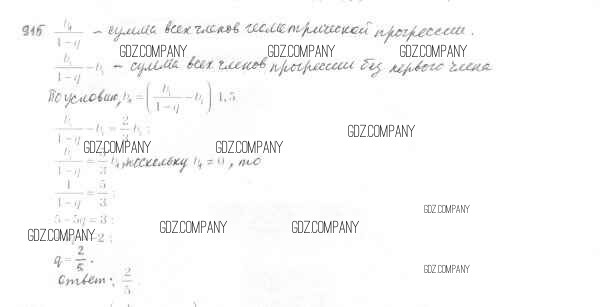 915 b₁/(1-q) – сумма всех членов геометрической прогрессии.
GDZ.COMPANY GDZ.COMPANY GDZ.COMPANY
b₁/(1-q) - b₁ – сумма всех членов прогрессии без первого члена
По условию, b₁ = (b₁/(1-q) - b₁) · 1,5
GDZ.COMPANY
b₁/(1-q) - b₁ = 2/3 b₁;
GDZ.COMPANY GDZ.COMPANY
b₁/(1-q) = 5/3 b₁, поскольку b₁ ≠ 0, то
1/(1-q) = 5/3;
GDZ.COMPANY
5 - 5q = 3;
GDZ.COMPANY GDZ.COMPANY GDZ.COMPANY
= 2;
q = 2/5.
GDZ.COMPANY
Ответ: 2/5.